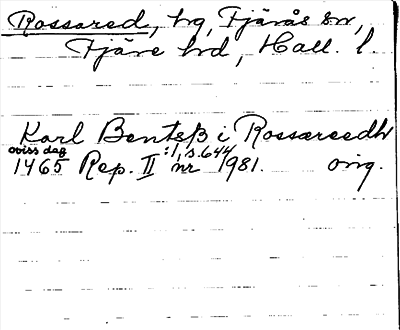 Rossared, hg, Fjärås sn,
Fjäre hd, Hall. l.
Karl Bentsß i Rossareedh
oviss dag :1, s. 644
1465 Rep. II nr 1981. orig.